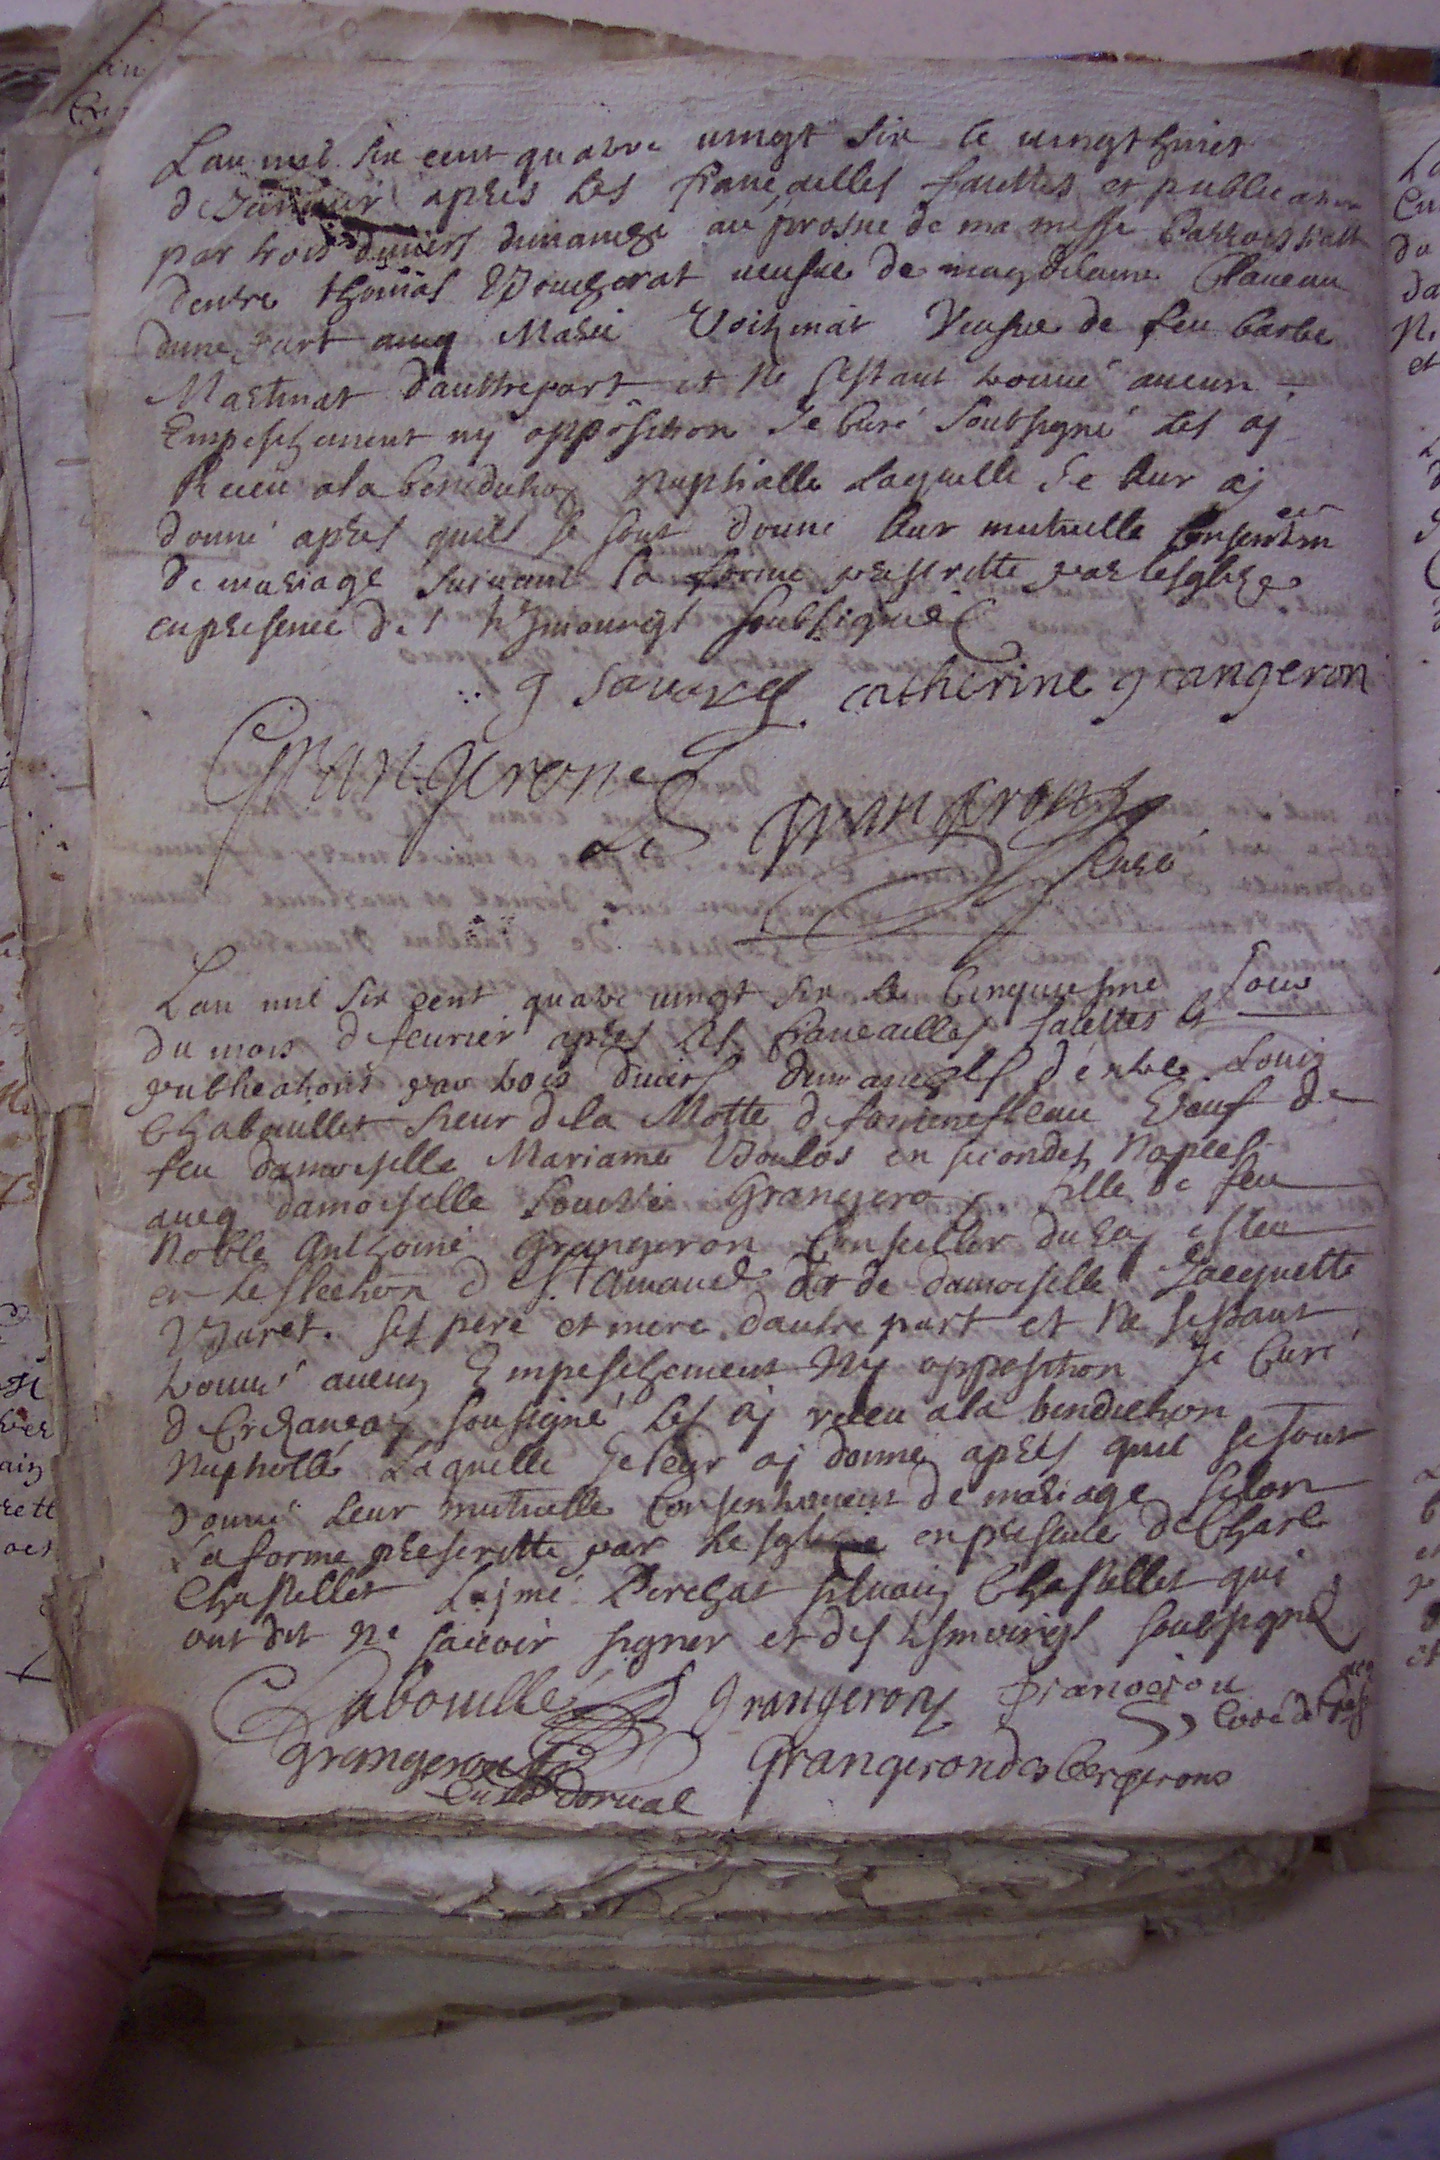 Lan mil six cent quatre vingt six le vingt huict
de Janvier apres les fiancailles faictes et publication
par trois divers dimanche au prosne de ma messe parroissialle
dentre thomas vefsue de magdelaine
dune part aueq Marie Vefsue de feu barbe
Martinat dauttrepart et ne sestant trouué aucun
Empeschement ny oppósition Je Curé Soubsigné les aj
Receu a la benediction Nuptialle laquelle Je leur aj
donné apres quils se sont donné leur mutuelle Consentem
en
de mariage suivant la forme prescritte par lesglize
en presence des tesmoingst soubsigné
g catherine grangeron
Grangeron
grangeron
Curé
Lan mil six cent quatre vingt six le Cinquiesme Jour
du mois de feurier apres les fiancailles faicttes et
publications par trois divers dimanches d'entre Louis
Chabouillet sieur de la Motte de fontenesleau Veuf de
feu damoiselle Marianne en secondes Nopces
aueq damoiselle Grangeron fille de feu
Noble Anthoine Grangeron Conseiller du Roy esleu
en leslection de St Amand et de damoiselle Jacquette
ses pere et mere dautre part et Ne sestant
trouué aucun Empeschement Ny opposition Je Curé
de sousigné les aj receu a la benediction
Nuptialle Laquelle Je leur aj donné apres quil se sont
donné leur mutuelle Consentement de mariage selon
La forme prescritte par lesglise en presence de Charle
Chastellet Perchat siluain Chastellet qui
ont dit Ne scauoir signer et des tesmoingst soubsigné
Chabouillé grangeron grangeron
Curé de
grangeron Grangeron des bergerons
Curé dorual